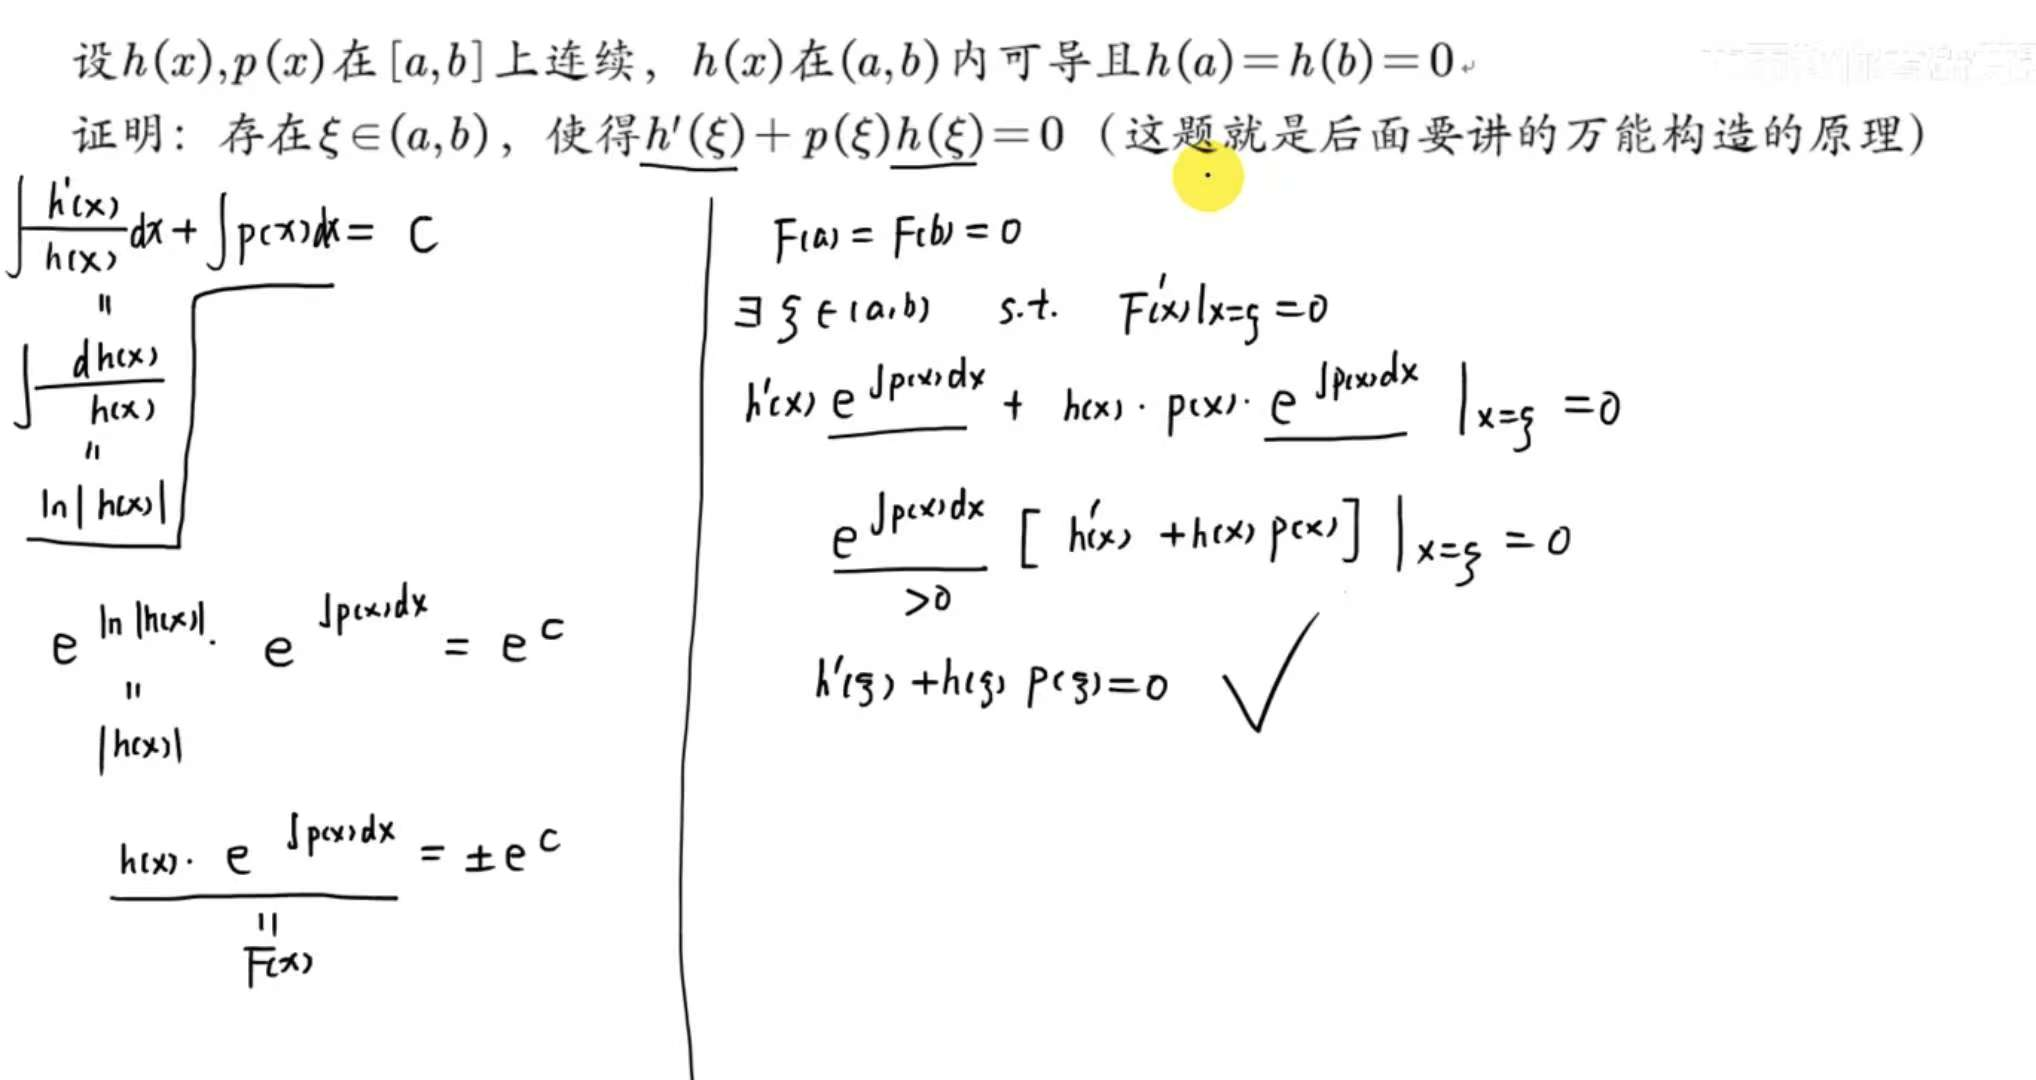 设h(x),p(x)在[a,b]上连续，h(x)在(a,b)内可导且h(a)=h(b)=0
证明：存在ξ∈(a,b)，使得h′(ξ)+p(ξ)h(ξ)=0（这题就是后面要讲的万能构造的原理）
∫ h'(x)/h(x) dx + ∫p(x)dx = C
=
∫ dh(x)/h(x)
=
ln|h(x)|
e^{ln|h(x)|} · e^{∫p(x)dx} = e^C
=
|h(x)|
h(x) · e^{∫p(x)dx} = ±e^C
=
F(x)
F(a) = F(b) = 0
∃ ξ ∈ (a,b) s.t. F'(x)|x=ξ = 0
h'(x) e^{∫p(x)dx} + h(x) · p(x) · e^{∫p(x)dx} |x=ξ = 0
e^{∫p(x)dx} [ h'(x) + h(x) p(x) ] |x=ξ = 0
>0
h'(ξ) + h(ξ) p(ξ) = 0 √